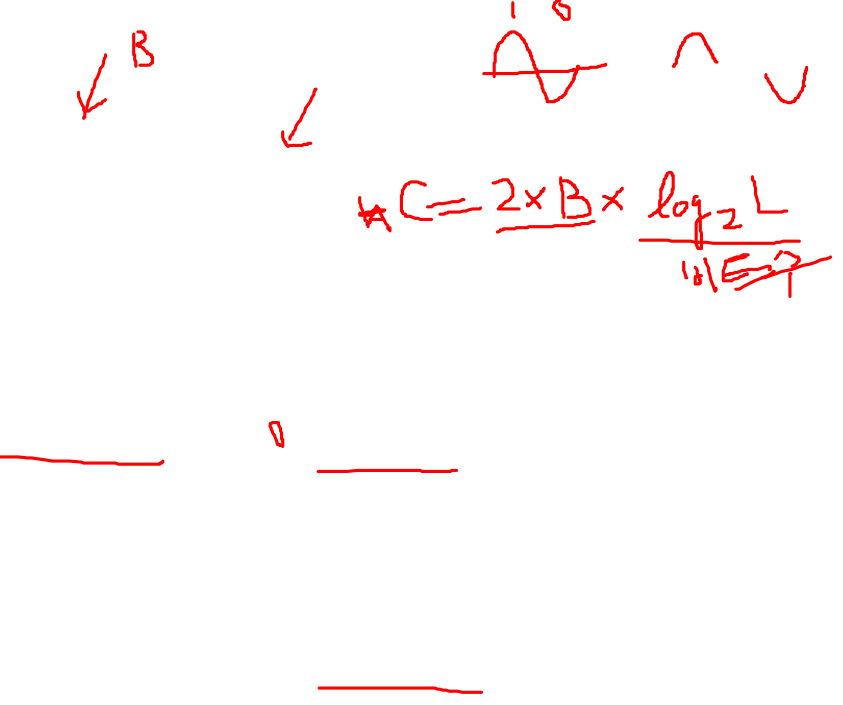 1 0
B
C = 2 × B × log₂ L
0